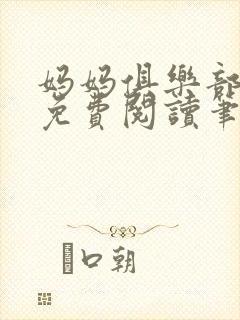 妈妈俱樂部
免費閱讀筆
口朝